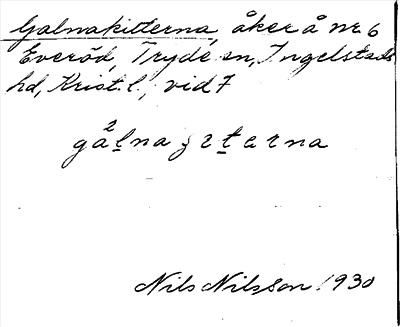 Galnakitterna, åker å nr 6
Everöd, Tryde sn, Ingelstads
hd, Krist. l., vid 7
Nils Nilsson 1930